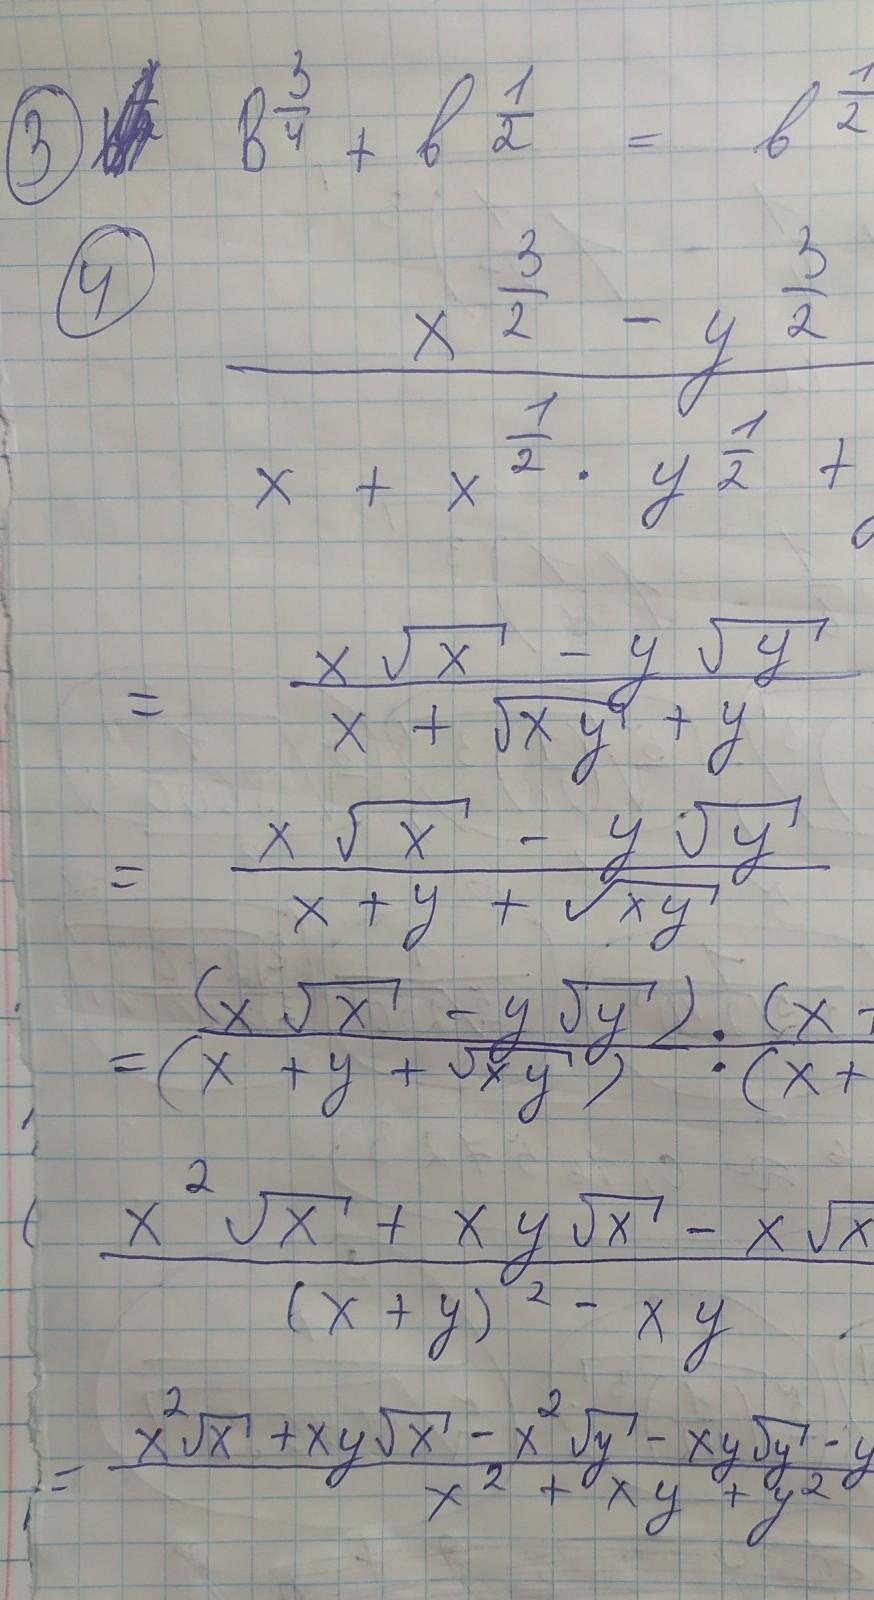 ③ b^{3/4} + b^{1/2} = b^{1/2}
④ \frac{x^{3/2} - y^{3/2}}{x + x^{1/2} · y^{1/2} +
= \frac{x√x - y√y}{x + √xy + y}
= \frac{x√x - y√y}{x + y + √xy}
= \frac{(x√x - y√y) · (x +}{(x + y + √xy) · (x +}
\frac{x^2√x + xy√x - x√x}{(x + y)^2 - xy}
= \frac{x^2√x + xy√x - x^2√y - xy√y - y}{x^2 + xy + y^2}